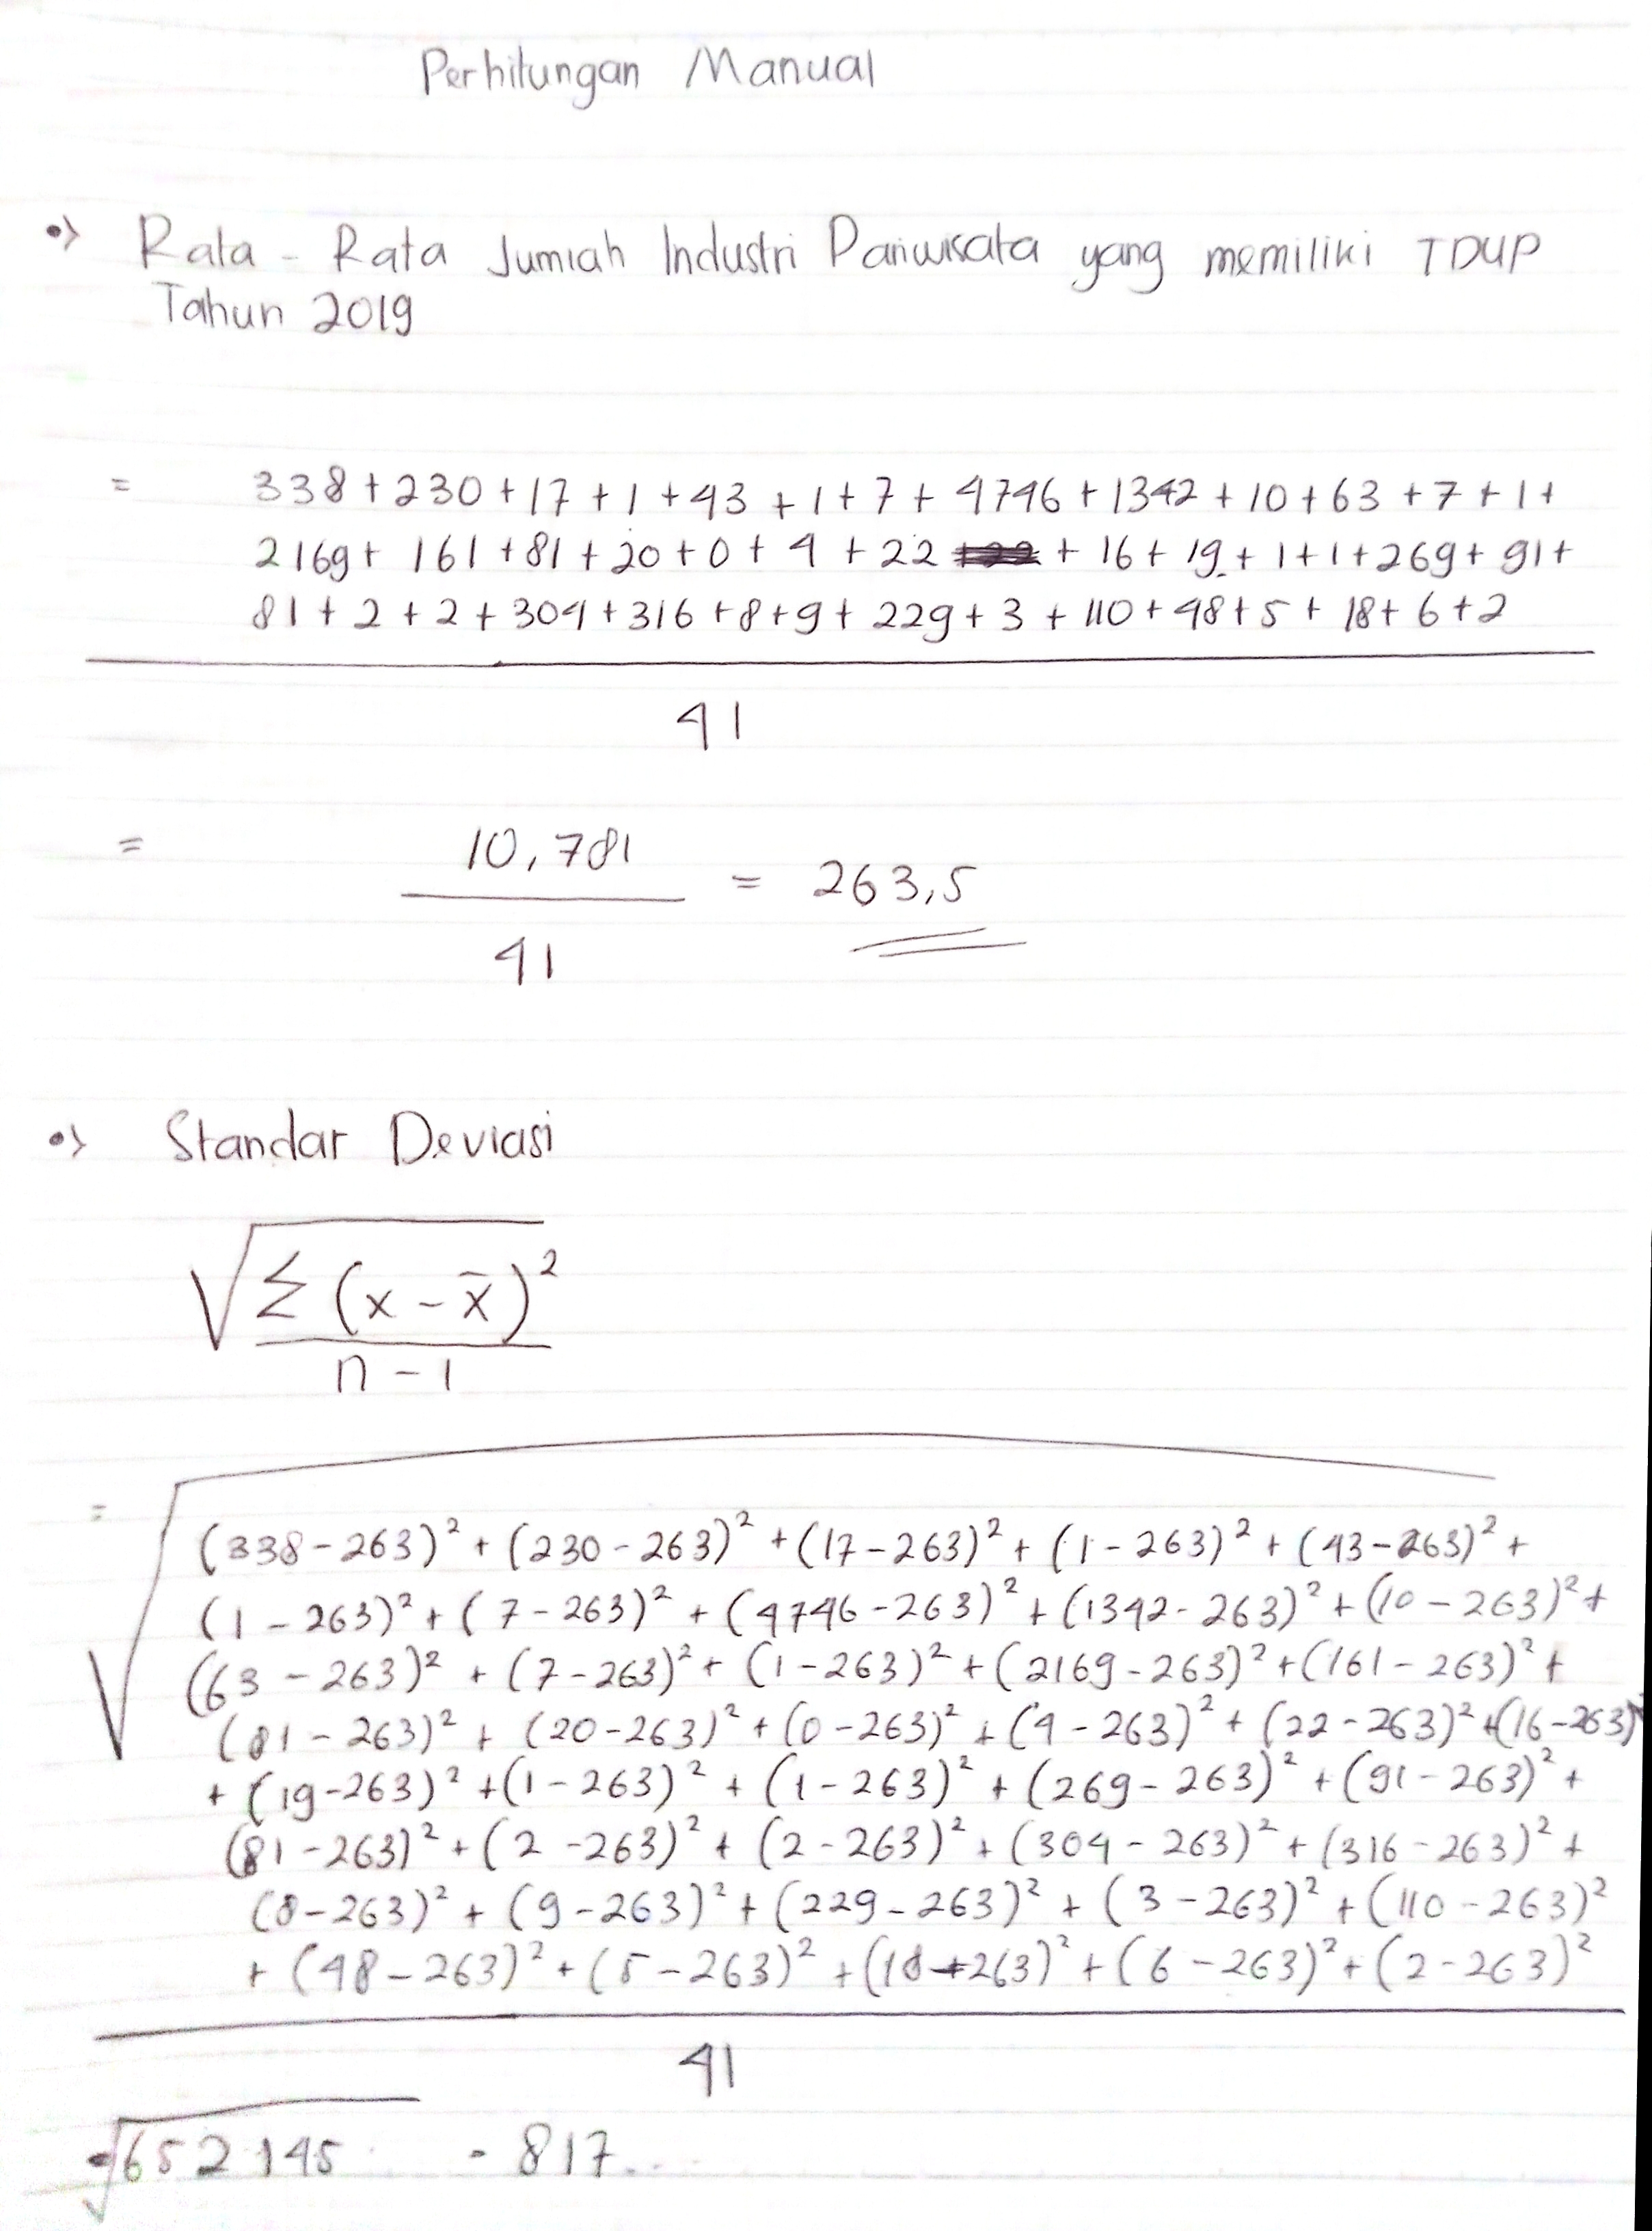 Perhitungan Manual
•> Rata - Rata Jumlah Industri Pariwisata yang memiliki TDUP
Tahun 2019
= 338 + 230 + 17 + 1 + 43 + 1 + 7 + 4746 + 1342 + 10 + 63 + 7 + 1 +
2169 + 161 + 81 + 20 + 0 + 4 + 22 + 16 + 19 + 1 + 1 + 269 + 91 +
81 + 2 + 2 + 304 + 316 + 8 + 9 + 229 + 3 + 110 + 48 + 5 + 18 + 6 + 2
41
= 10,781
= 263,5
41
•> Standar Deviasi
√ Σ (x - x̄)²
n - 1
= √ (338 - 263)² + (230 - 263)² + (17 - 263)² + (1 - 263)² + (43 - 263)² +
(1 - 263)² + (7 - 263)² + (4746 - 263)² + (1342 - 263)² + (10 - 263)² +
(63 - 263)² + (7 - 263)² + (1 - 263)² + (2169 - 263)² + (161 - 263)² +
(81 - 263)² + (20 - 263)² + (0 - 263)² + (4 - 263)² + (22 - 263)² + (16 - 263)²
+ (19 - 263)² + (1 - 263)² + (1 - 263)² + (269 - 263)² + (91 - 263)² +
(81 - 263)² + (2 - 263)² + (2 - 263)² + (304 - 263)² + (316 - 263)² +
(8 - 263)² + (9 - 263)² + (229 - 263)² + (3 - 263)² + (110 - 263)²
+ (48 - 263)² + (5 - 263)² + (18 + 263)² + (6 - 263)² + (2 - 263)²
41
= √652 145 = 817...